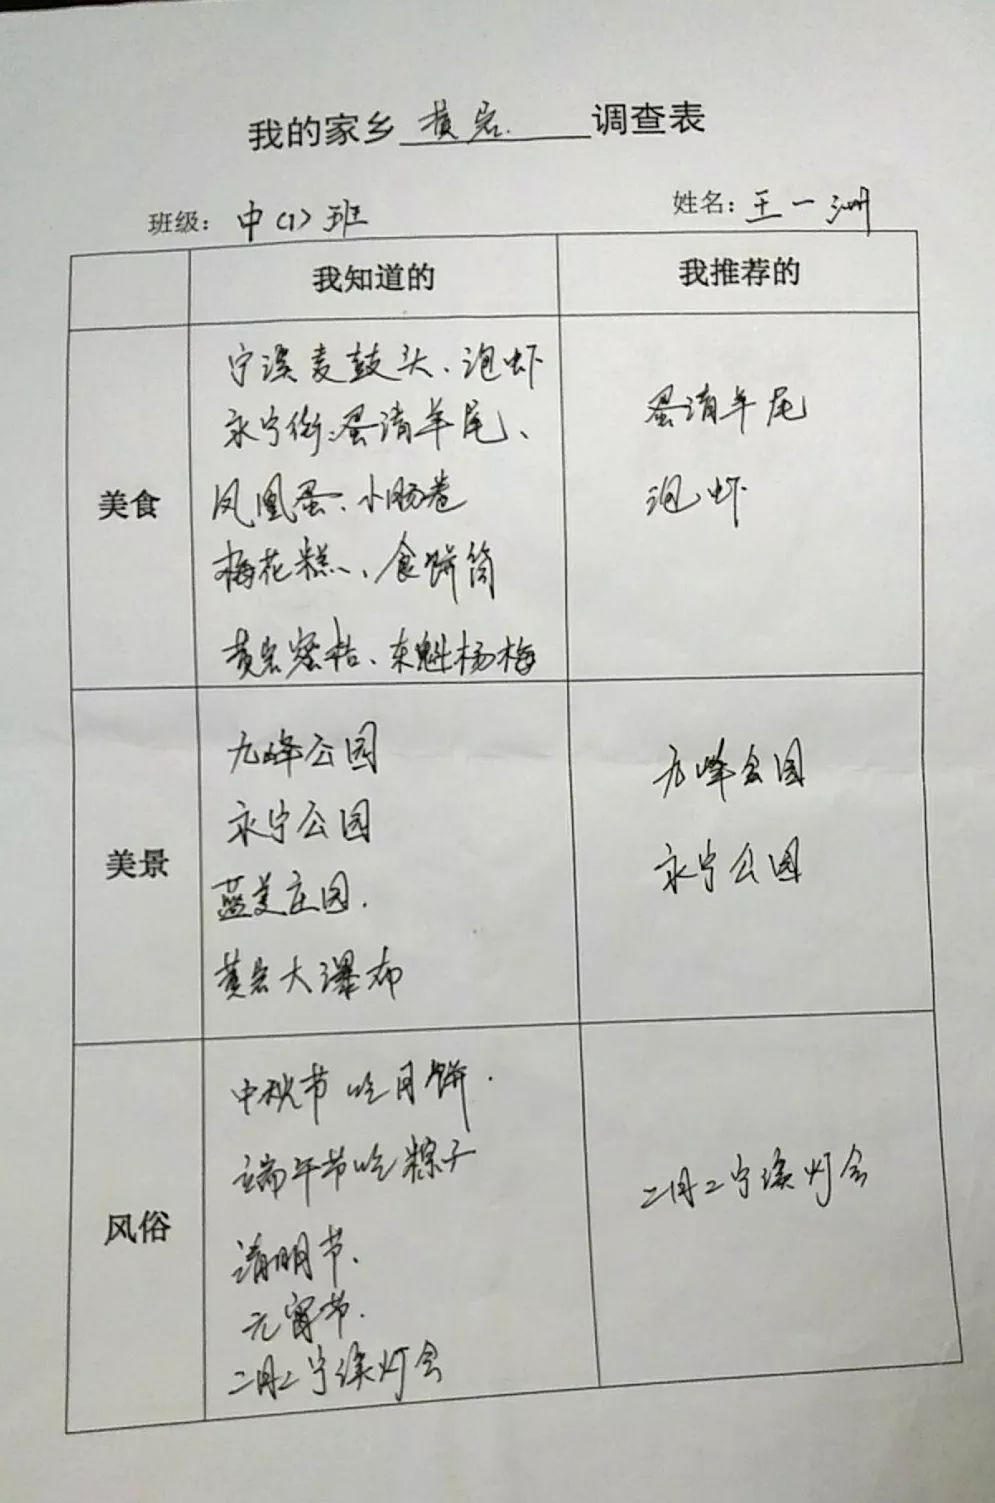 我的家乡 黄岩 调查表
班级：中（1）班 姓名：王一洲
我知道的 我推荐的
美食
宁溪麦鼓头、泡虾
永宁街：蛋清羊尾、
凤凰蛋、小肠卷
梅花糕、食饼筒
黄岩蜜桔、东魁杨梅
蛋清羊尾
泡虾
美景
九峰公园
永宁公园
蓝美庄园.
黄岩大瀑布
九峰公园
永宁公园
风俗
中秋节吃月饼.
端午节吃粽子
清明节.
元宵节.
二月二宁溪灯会
二月二宁溪灯会